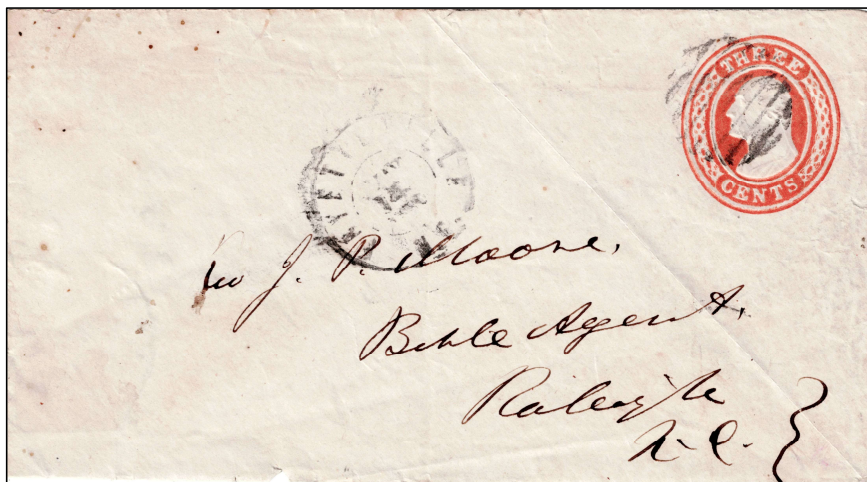 THREE
CENTS
Rev J. P. Moore,
Bible Agent,
Raleigh
N.C.